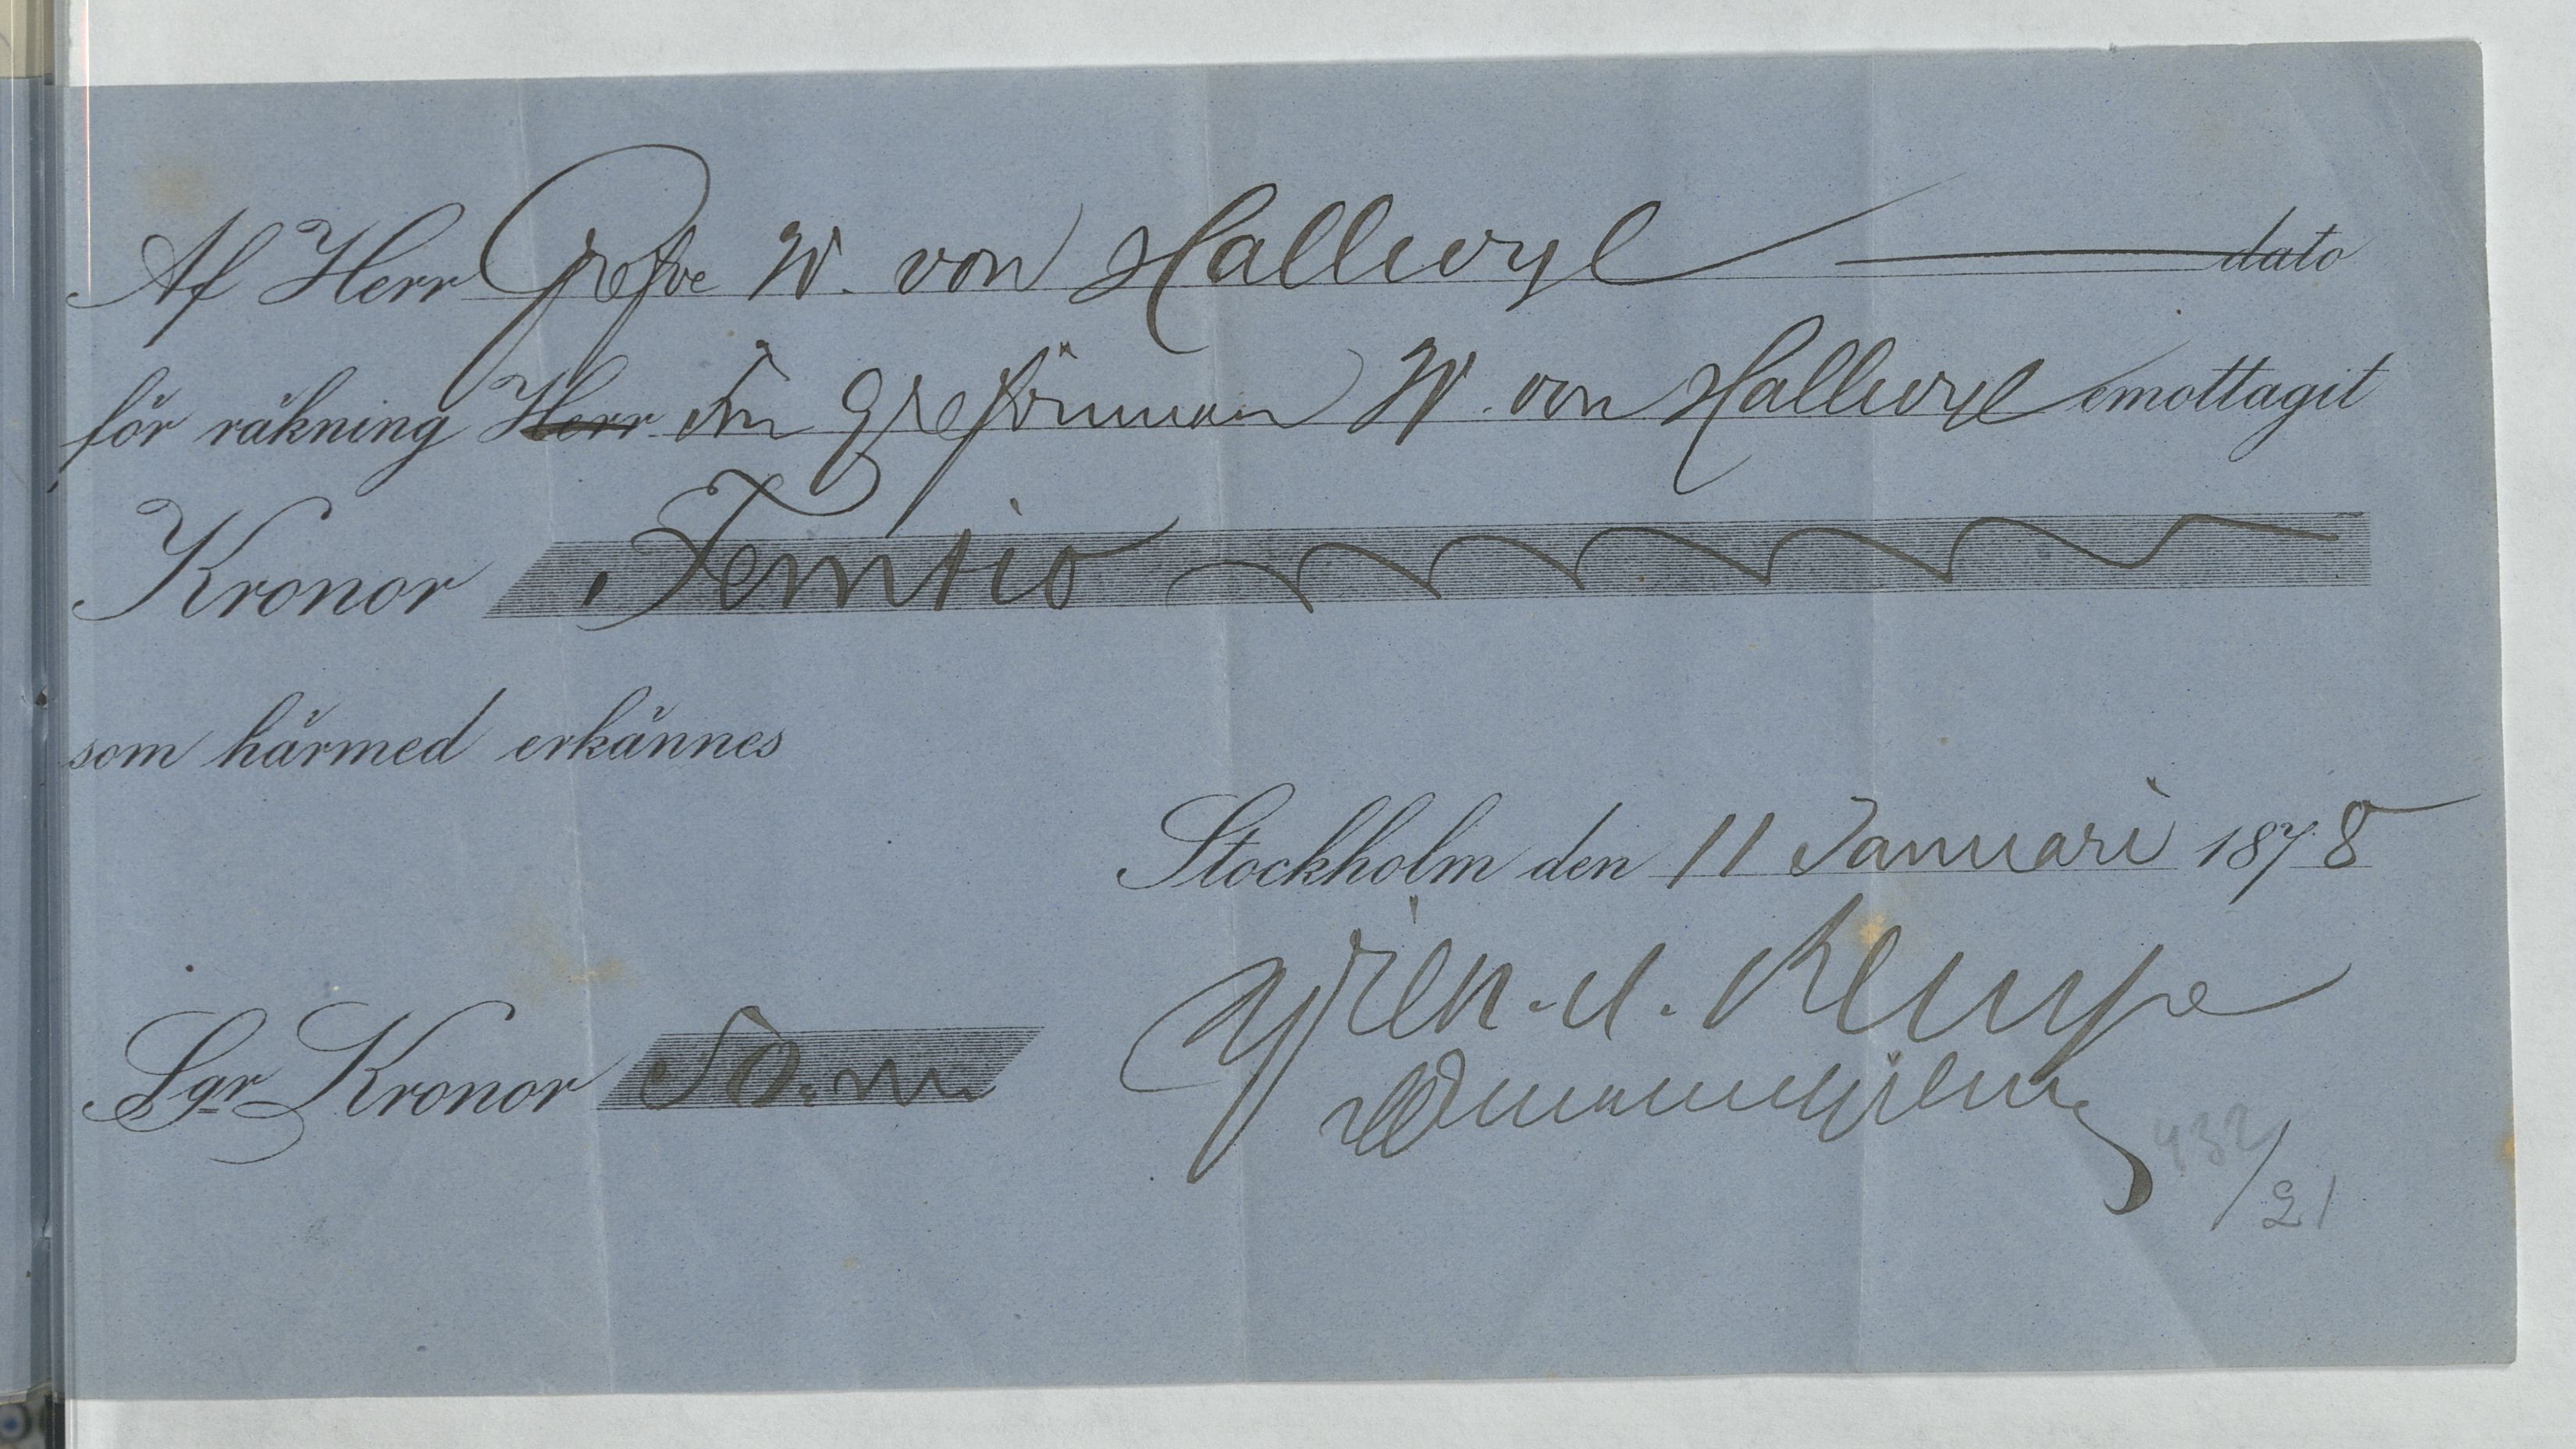 Af Herr Grefve W. von Hallwyl dato
för räkning Herr W. von Hallwyl emottagit
Kronor Femtio
som härmed erkännes
Stockholm den 11 Januari 1878
Sgr Kronor 50.
432/21